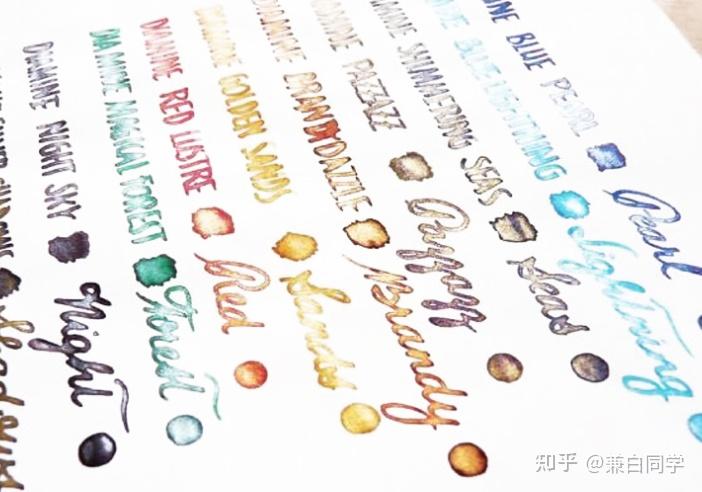 DIAMINE NIGHT SKY
Night
DIAMINE MAGICAL FOREST
Forest
DIAMINE RED LUSTRE
Red
DIAMINE GOLDEN SANDS
Sands
DIAMINE BRANDY DAZZLE
Brandy
PAZZAZZ
Pazzazz
SHIMMERING SEAS
Seas
BLUE LIGHTNING
Lightning
BLUE PEARL
Pearl
知乎 @兼白同学